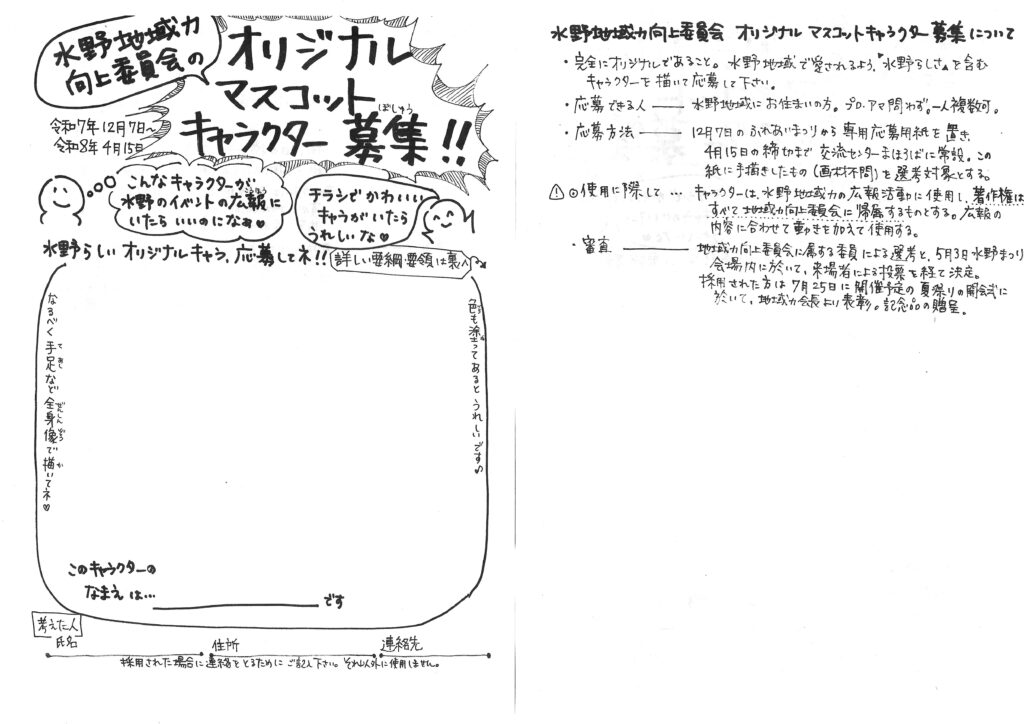 水野地域力
向上委員会の
オリジナル
マスコット
キャラクター 募集!!
ぼしゅう
令和7年12月7日〜
令和8年4月15日
こんなキャラクターが、
水野のイベントの広報に
いたら いいのになぁ♥
チラシでかわいい
キャラがいたら
うれしいな♥
水野らしい オリジナルキャラ、応募してネ!!
詳しい要綱・要領は裏へ
なるべく 手足など 全身像で 描いてネ♥
て あし ぜんしんぞう か
色も塗ってあると うれしいです♪
このキャラクターの
なまえ は… です
考えた人
氏名 住所 連絡先
採用された場合に連絡をとるために ご記入下さい。それ以外に使用しません。
水野地域力向上委員会 オリジナル マスコットキャラクター 募集について
・完全にオリジナルであること。水野地域で愛されるよう、"水野らしさ"を含む
キャラクターを描いて応募して下さい。
・応募できる人 ── 水野地域にお住まいの方。プロ、アマ問わず。一人複数可。
・応募方法 ── 12月7日のふれあいまつりから 専用応募用紙を置き、
4月15日の締切まで 交流センターまほろばに常設。この
紙に手描きしたもの(画材不問)を選考対象とする。
! ⊙使用に際して … キャラクターは、水野地域力の広報活動に使用し、著作権は
すべて地域力向上委員会に帰属するものとする。広報の
内容に合わせて動きを加えて使用する。
・審査 ── 地域力向上委員会に属する委員による選考と、5月3日水野まつり
会場内に於いて、来場者による投票を経て決定。
採用された方は 7月25日に開催予定の 夏祭りの開会式に
於いて、地域力会長より表彰。記念品の贈呈。